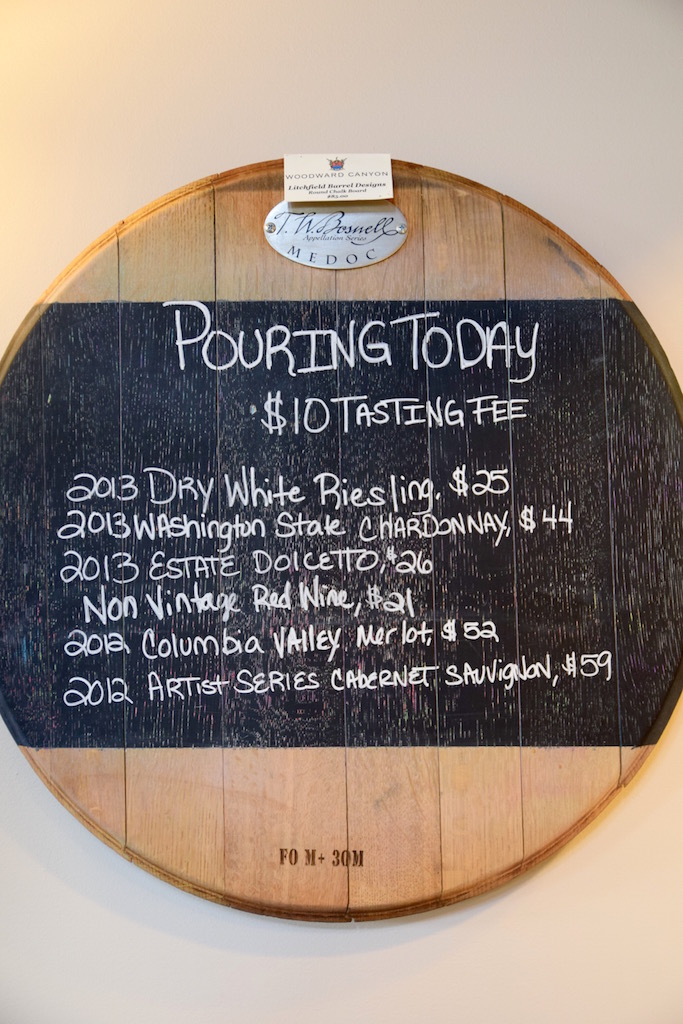 WOODWARD CANYON
Litchfield Barrel Designs
Round Chalk Board
T.W. Bosnell
Appellation Series
MEDOC
POURING TODAY
$10 TASTING FEE
2013 DRY White Riesling, $25
2013 WAshington State CHARDONNAY, $44
2013 ESTATE DOLCETTO, $26
Non Vintage Red Wine, $21
2012 Columbia VAlley Merlot, $52
2012 ARTist SERIES CABERNET SAUVIGNON, $59
FO M+ 30M